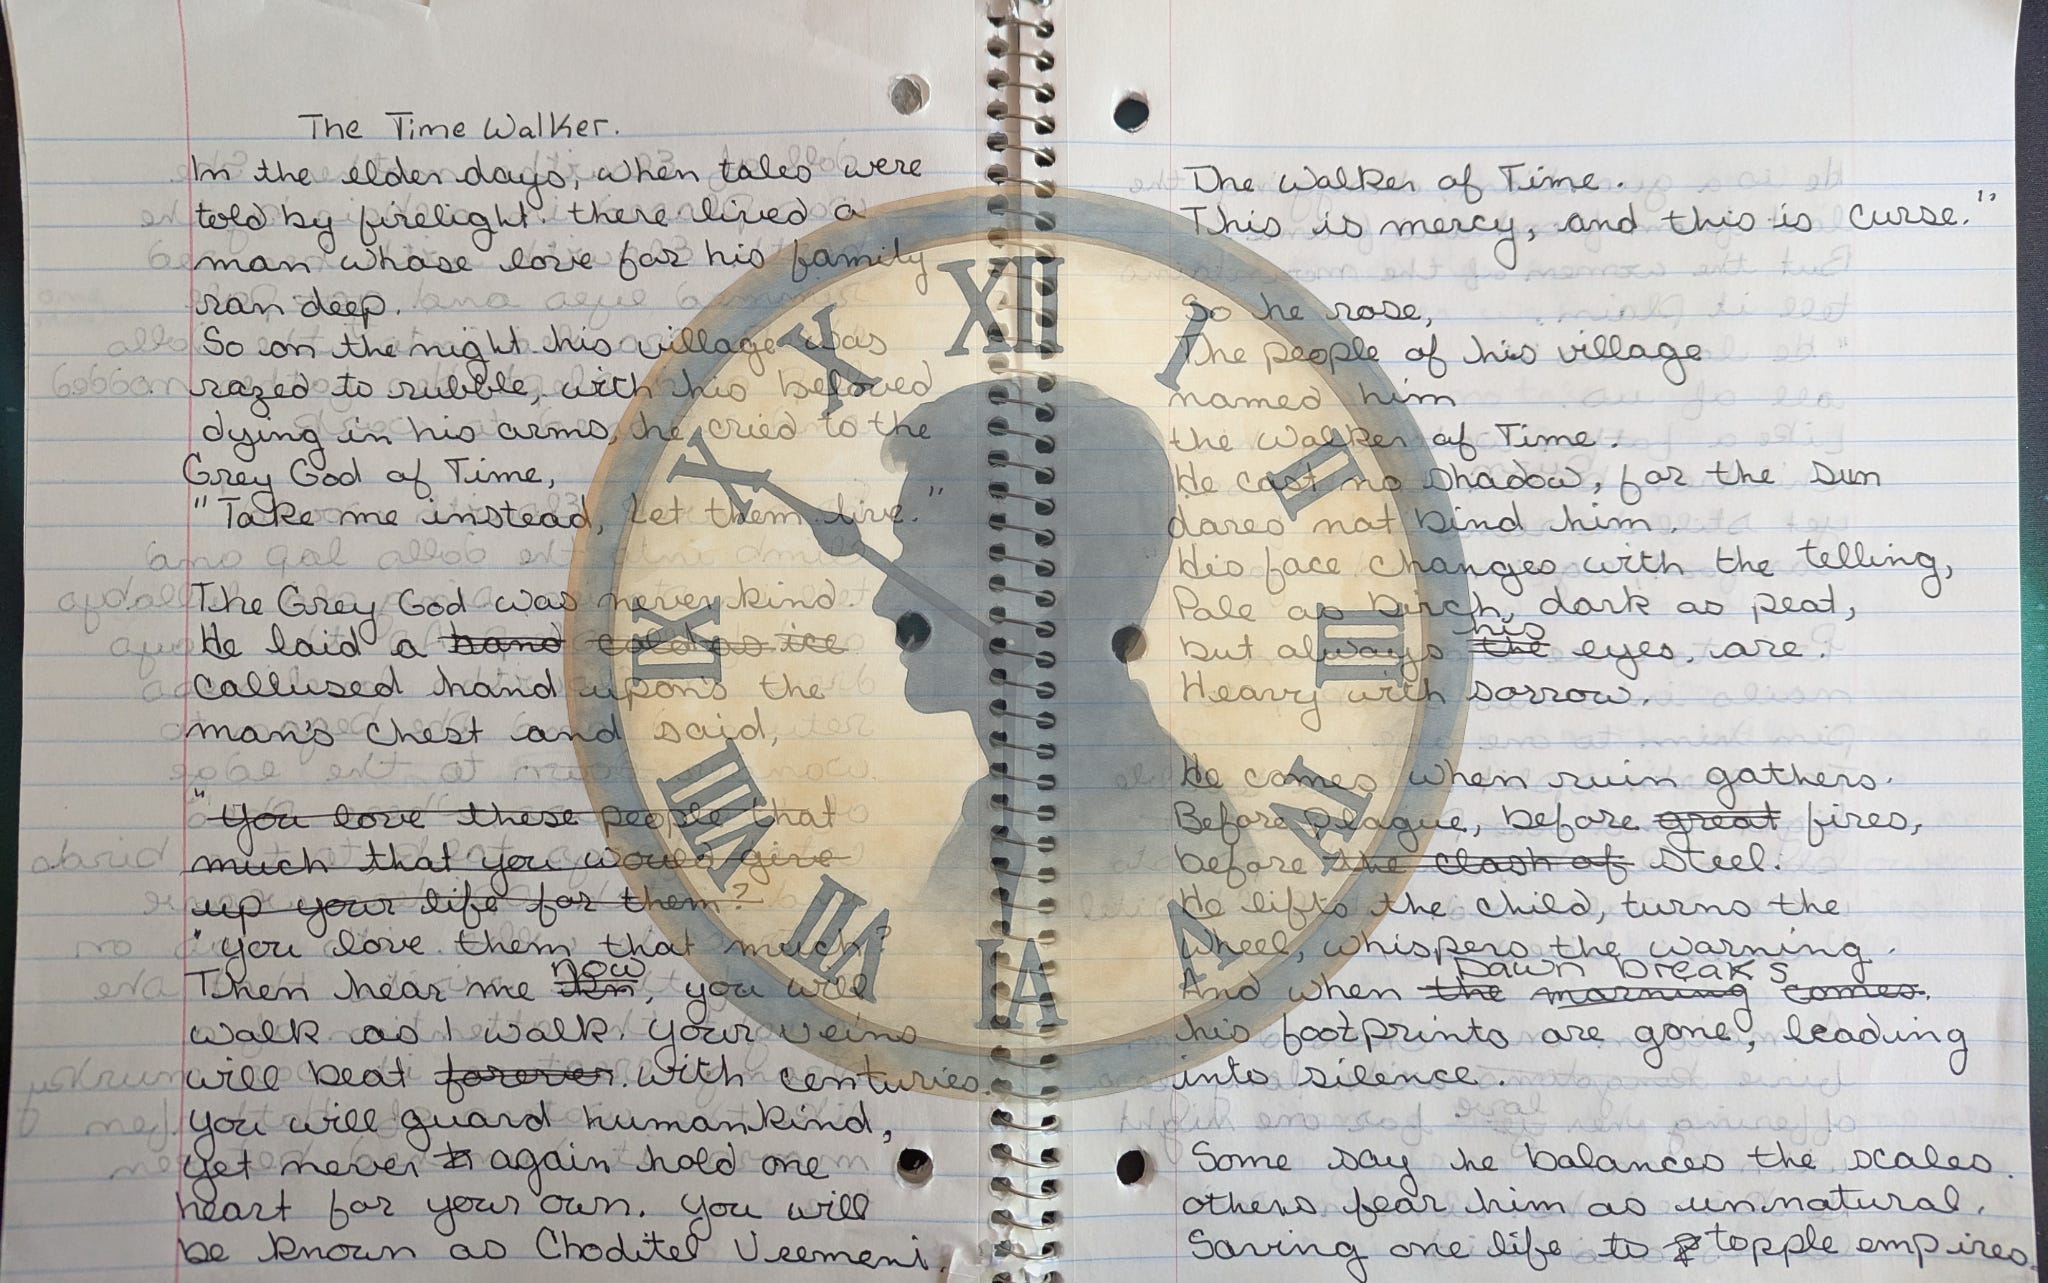 The Time Walker.
In the elder days, when tales were
told by firelight. there lived a
man whose love for his family
ran deep.
So on the night his village was
razed to rubble, with his beloved
dying in his arms, he cried to the
Grey God of Time,
"Take me instead, let them live."
The Grey God was never kind.
He laid a hand cold as ice
callused hand upon's the
man's chest and said,
"You love these people that
much that you would give
up your life for them?
"You love them that much?
now
Then hear me, you will
walk as I walk. Your veins
will beat forever. with centuries.
You will guard humankind,
yet never again hold one
heart for your own. You will
be known as Choditel Vremeni.
The Walker of Time.
This is mercy, and this is curse."
So he rose,
The people of his village
named him
the Walker of Time.
He cast no shadow, for the sun
dares not bind him.
His face changes with the telling,
Pale as birch, dark as peat,
his
but always the eyes, are.
Heavy with sorrow.
He comes when ruin gathers.
Before plague, before great fires,
before the clash of steel.
He lifts the child, turns the
wheel, whispers the warning.
Dawn breaks
And when the morning comes.
his footprints are gone, leading
into silence.
Some say he balances the scales.
others fear him as unnatural.
Saving one life to topple empires.
XII
I
II
III
IV
V
VI
VII
VIII
IX
X
X